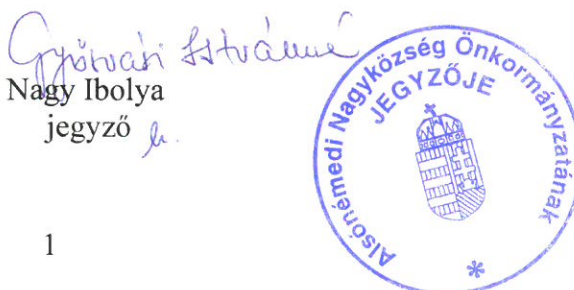 Györvári Istvánné
Nagy Ibolya
jegyző h.
1
Alsónémedi Nagyközség Önkormányzatának
JEGYZŐJE
*